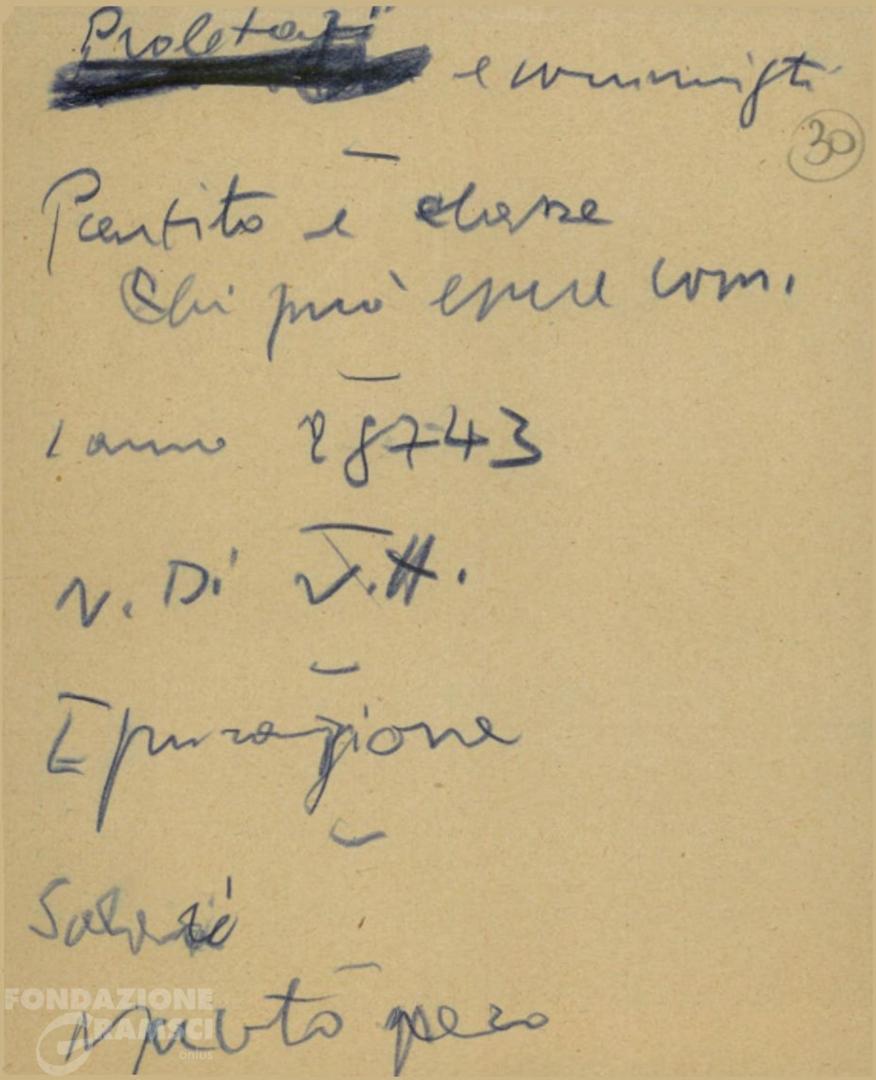 Proletari e comunisti
30
Partito e classe
Chi può essere com.
1 anno 28743
N. Di V.H.
Epurazione
Salari
peso
FONDAZIONE
GRAMSCI
onlus